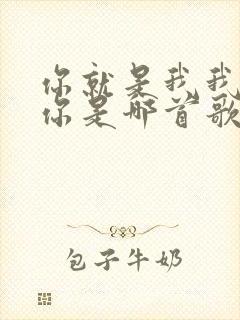 你就是我我
你是哪首歌
包子牛奶